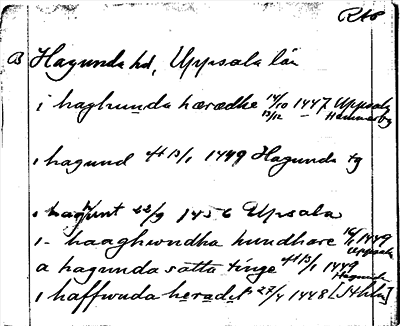 RAp
B Hagunda hd, Uppsala län
i haghunda hærædhe 14/10 1447 Uppsala
13/12 — Hammarby
i hagund 13/1 1449 Hagunda tg
i haghunt 22/9 1456 Uppsala
i - haaghwndha hundhare 16/1 1449 Uppsala
a hagunda satto tinge 13/1 1449 Hagunda
i haffwuda 27/4 1448